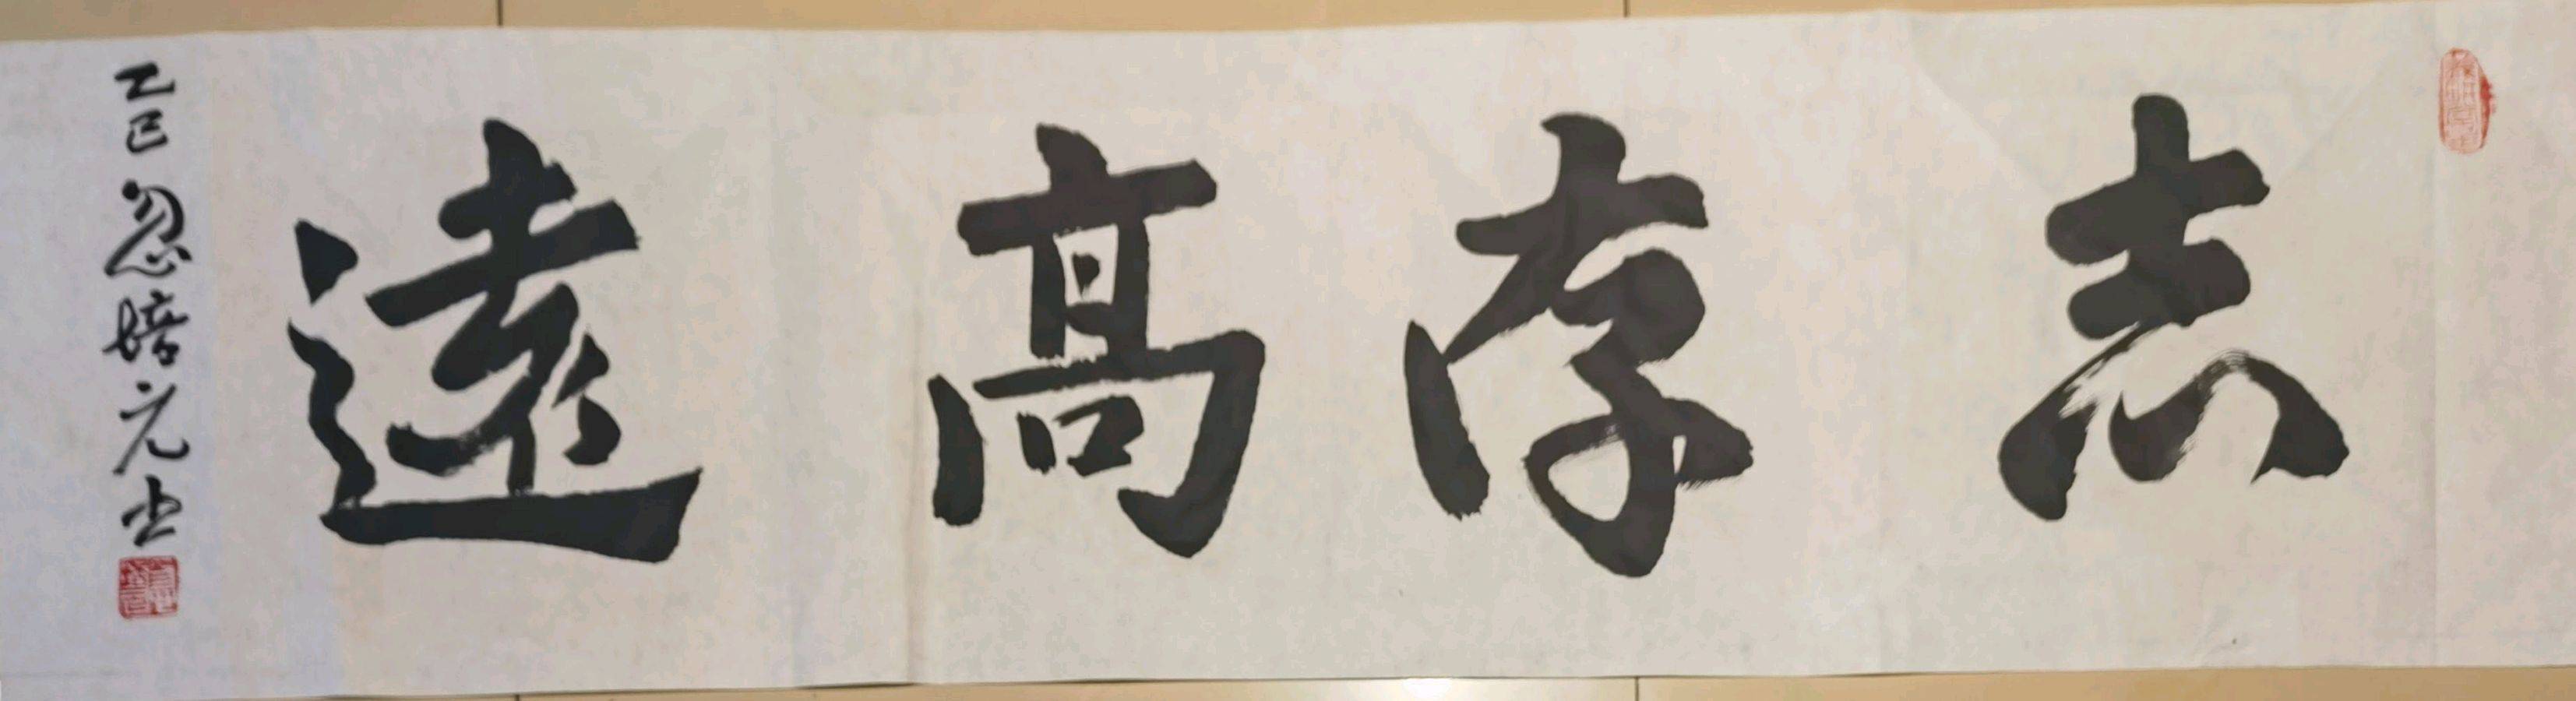 志存高遠
乙巳忽培元书